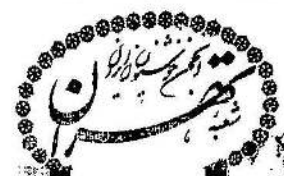 انجمن خوشنویسان ایران
شعبه
تهران